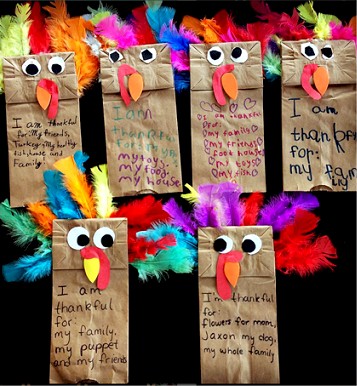 I am thankful
for: My friends,
Turkey, My healthy
fish, house and
Family.
I am
thankful
for: my
my toys,
my food,
my house
I am thankful
for:
my family
my friends
food house
my toys
my fish
I am
thankful
for:
my family
I am
thankful
for:
my family,
my puppet
and my friends
I'm thankful
for
flowers for mom,
Jaxon my dog,
my whole family